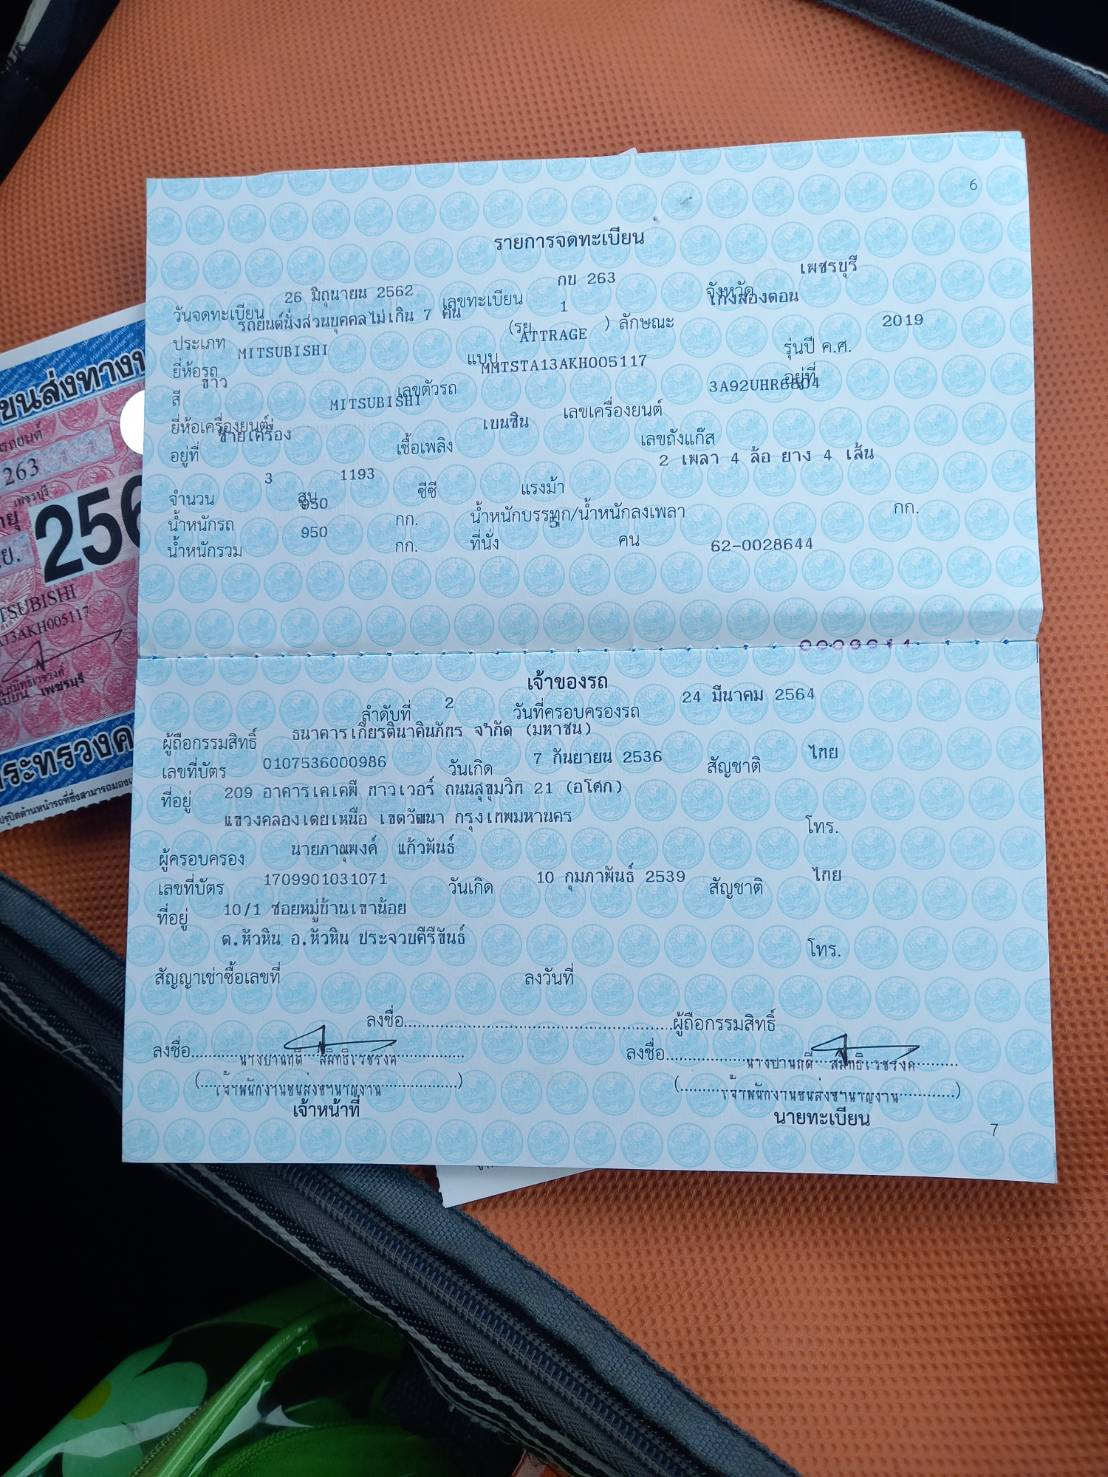 6
รายการจดทะเบียน
วันจดทะเบียน 26 มิถุนายน 2562 เลขทะเบียน กข 263 จังหวัด เพชรบุรี
ประเภท รถยนต์นั่งส่วนบุคคลไม่เกิน 7 คน (รย. 1 ) ลักษณะ เก๋งสองตอน
ยี่ห้อรถ MITSUBISHI แบบ ATTRAGE รุ่นปี ค.ศ. 2019
สี ขาว เลขตัวรถ MMTSTA13AKH005117 อยู่ที่
ยี่ห้อเครื่องยนต์ MITSUBISHI เลขเครื่องยนต์ 3A92UHR6604
อยู่ที่ ซ้ายเครื่อง เชื้อเพลิง เบนซิน เลขถังแก๊ส
จำนวน 3 สูบ 1193 ซีซี แรงม้า 2 เพลา 4 ล้อ ยาง 4 เส้น
น้ำหนักรถ 950 กก. น้ำหนักบรรทุก/น้ำหนักลงเพลา กก.
น้ำหนักรวม 950 กก. ที่นั่ง 5 คน 62-0028644
เจ้าของรถ
ลำดับที่ 2 วันที่ครอบครองรถ 24 มีนาคม 2564
ผู้ถือกรรมสิทธิ์ ธนาคารเกียรตินาคินภัทร จำกัด (มหาชน)
เลขที่บัตร 0107536000986 วันเกิด 7 กันยายน 2536 สัญชาติ ไทย
ที่อยู่ 209 อาคารเคเคพี ทาวเวอร์ ถนนสุขุมวิท 21 (อโศก)
แขวงคลองเตยเหนือ เขตวัฒนา กรุงเทพมหานคร โทร.
ผู้ครอบครอง นายภาณุพงค์ แก้วพันธ์
เลขที่บัตร 1709901031071 วันเกิด 10 กุมภาพันธ์ 2539 สัญชาติ ไทย
ที่อยู่ 10/1 ซอยหมู่บ้านเขาน้อย
ต.หัวหิน อ.หัวหิน ประจวบคีรีขันธ์ โทร.
สัญญาเช่าซื้อเลขที่ ลงวันที่
ลงชื่อ ผู้ถือกรรมสิทธิ์
ลงชื่อ ลงชื่อ
เจ้าพนักงานขนส่งชำนาญงาน เจ้าพนักงานขนส่งชำนาญงาน
เจ้าหน้าที่ นายทะเบียน
7
263
เพชรบุรี
256
TSUBISHI
A13AKH005117
เพชรบุรี